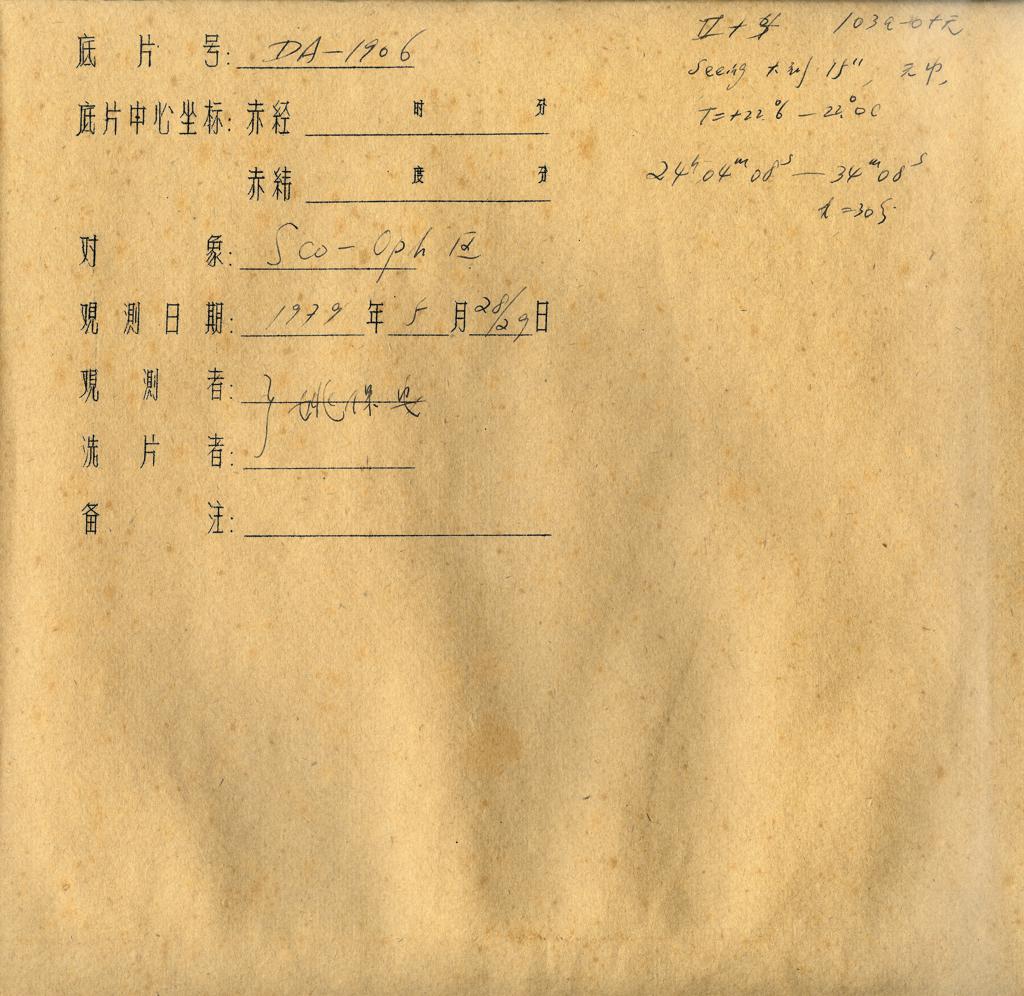 底片号: DA-1906
底片中心坐标: 赤经 时 分
赤纬 度 分
对象: Sco-Oph IX
观测日期: 1979年5月28/29日
观测者:
洗片者:
备注:
II + 103a-O+
Seeing 15"
T=+22°.6 — 22°.0C
24ʰ04ᵐ08ˢ — 34ᵐ08ˢ
=30分